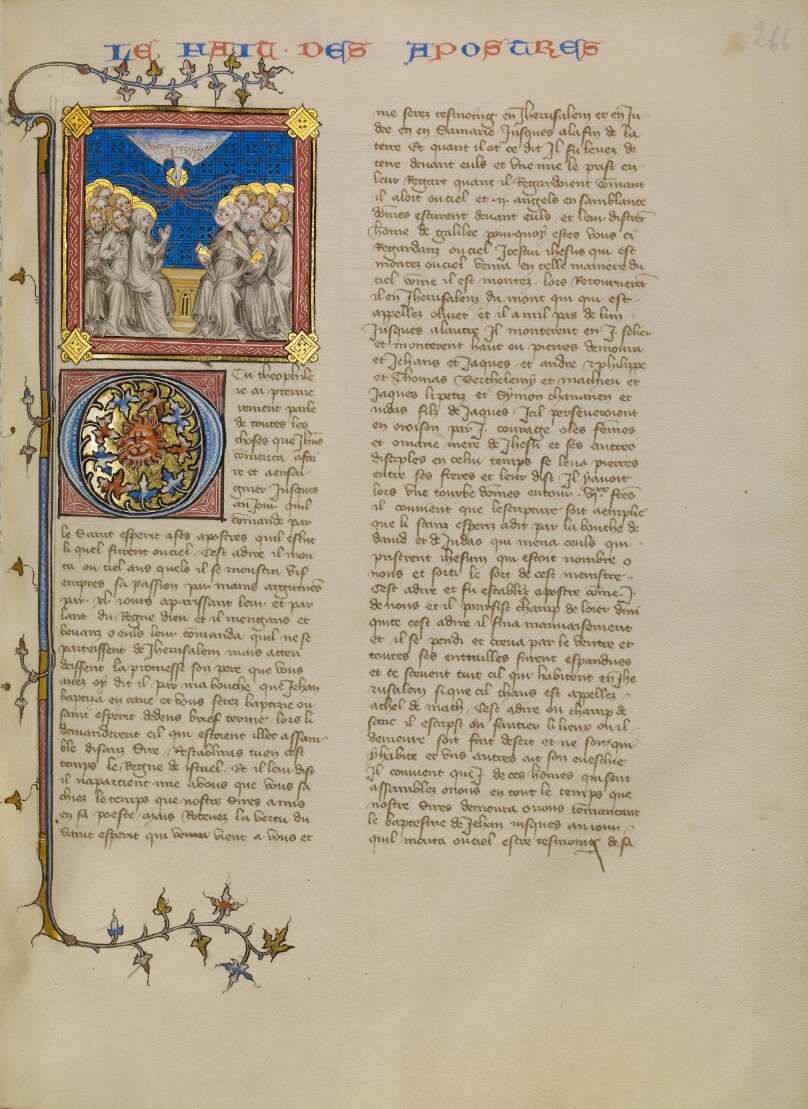 LE FAIT DES APOSTRES
266
Tu theophile
ie ai premie
rement parle
de toutes les
choses que Jhus
comenca a fai
re et a ensei
gnier Jusques
au Jour quil
comanda par
le Saint esperit a ses apostres quil eslut
li quel furent ou ciel Cest adire il mon
ta ou ciel aus quels il se moustra vif
empres sa passion par mains argumens
par xl iours aparissant leur et par
lant du Regne dieu et il mengans et
beuans o euls leur comanda quil ne se
partissent de Jherusalem mais atten
dissent la promesse son pere que vous
auez oy dit il par ma bouche que Jehan
baptiza en eaue et vous serez baptizie ou
saint esperit dedens brief terme lors li
demanderent cil qui estoient illec assam
ble disans Sire Restabliras tu en cest
temps le Regne de israel Et il leur dist
il napartient mie a vous que vous sa
chiez le temps que nostre Sires a mis
en sa poeste mais Retenez la vertu du
saint esperit qui vient a vous et
me serez tesmoing en Jherusalem et en Ju
dee et en Samarie Jusques a la fin de la
terre Et quant il ot ce dit Il fu leuez de
terre deuant euls et vne nue le prist en
leur Regart quant il Regardoient comant
il aloit ou ciel et .ij. angels en samblance
domes esturent deuant euls et leur distrent
home de galilee pour quoy estes vous ci
Regardanz ou ciel Icestui ihesus qui est
montez ou ciel venra en telle maniere du
ciel come il est montez lors Retournerent
il en Jherusalem du mont qui est
appellez oliuet et il a mil pas de lun
Jusques a lautre Il monterent en .J. solier
et monterent haut ou pierres demoura
et Jehans et Jaques et andre et phelippe
et Thomas Berthelemy et mathieu et
Jaques li petiz et Symon chananen et
iudas filz de Jaques Icil perseueroient
en oroison par .J. courage o les femes
et o marie mere de Jhesu et ses autres
disciples en celui temps se leua pierres
entre ses freres et leur dist Il y auoit
lors vne tourbe domes entour
il conuient que lescripture soit aemplie
que li sainz esperiz a dit par la bouche de
dauid et de Iudas qui mena ceuls qui
pristrent ihesum qui estoit nombre o
nous et sorti le sort de cest menistre
Cest adire et fu establiz apostre come .J.
de nous et il pourfist champ de loier dini
quite cest adire il fina mauuaisement
et il se pendi et creua par le ventre et
toutes ses entrailles furent espandues
et ce sceuent tuit cil qui habitent en Jhe
rusalem si que cil chans est appellez
achel de mach Cest adire ou champ de
sanc il escript ou sautier li lieux ou il
demeure soit fait desert et ne soit qui
y habite et vns autres ait son eueschie
Il conuient que .J. de ces homes qui sont
assamblez o nous en tout le temps que
nostre Sires demoura o nous comancant
le baptesme de Jehan iusques au iour
quil monta ou ciel estre tesmoing de sa